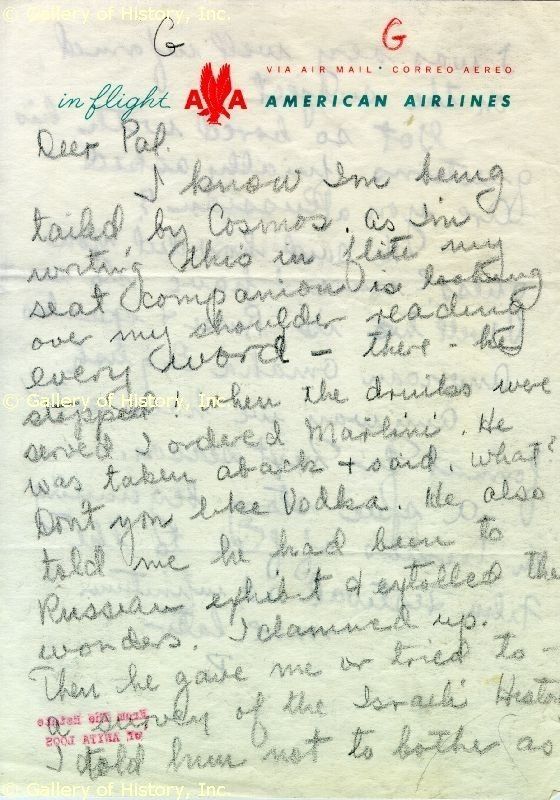 © Gallery of History, Inc.
G G
VIA AIR MAIL · CORREO AEREO
in flight AA AMERICAN AIRLINES
Dear Pal.
I know I'm being
tailed by Cosmos. As I'm
writing this in flite my
seat companion is looking
over my shoulder reading
every word – there – he
© Gallery of History, Inc.
stopped! When the drinks were
served I ordered Martini. He
was taken aback + said, what?
Don't you like Vodka. He also
told me he had been to
Russian exhibit & extolled the
wonders. I clammed up.
Then he gave me or tried to –
a survey of the Israeli Histo
I told him not to bothe as
From The Estate
of ANITA LOOS
© Gallery of History, Inc.